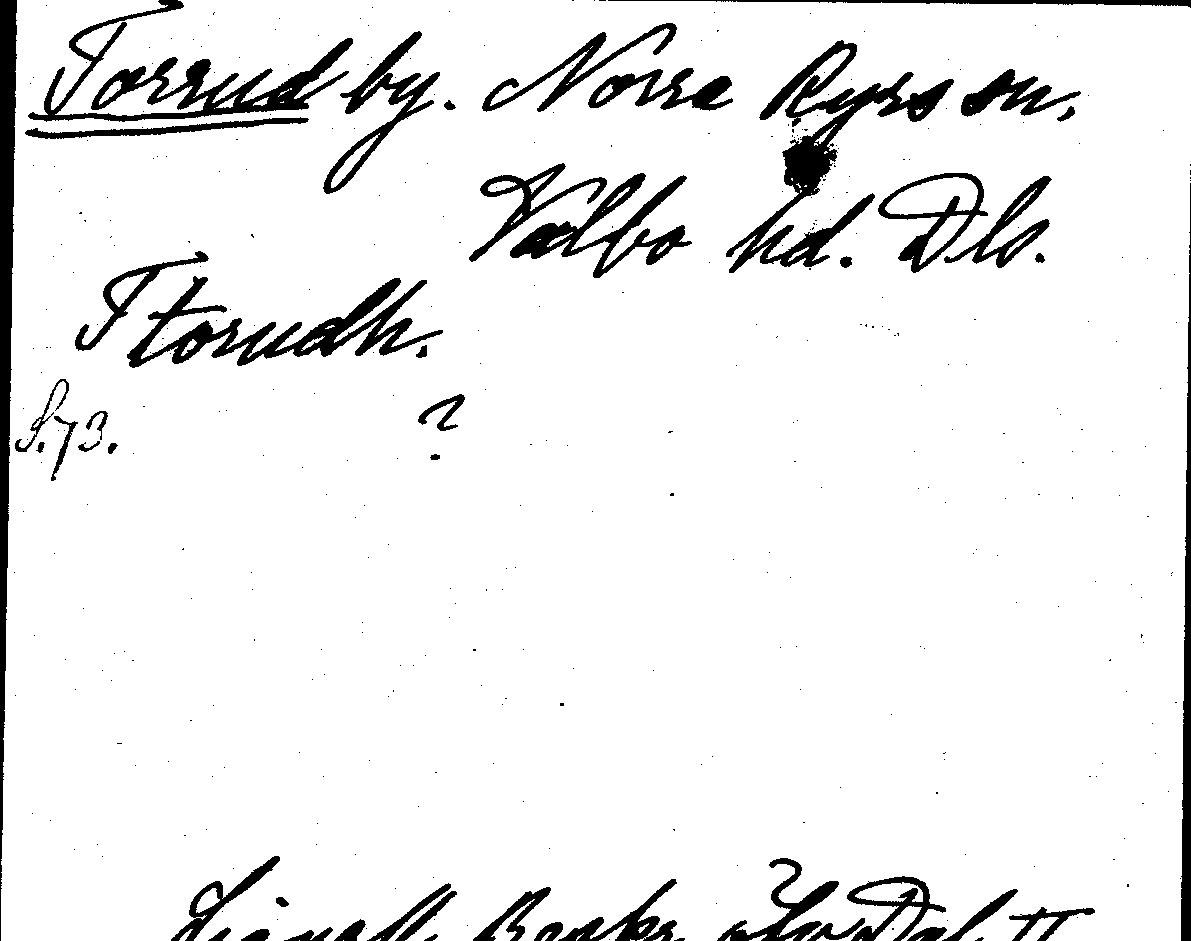 Torrud by. Norra Ryrs sn.
Valbo hd. Dls.
Ttorudh.
S. 73. ?
Lignell Beskr. Dal. II